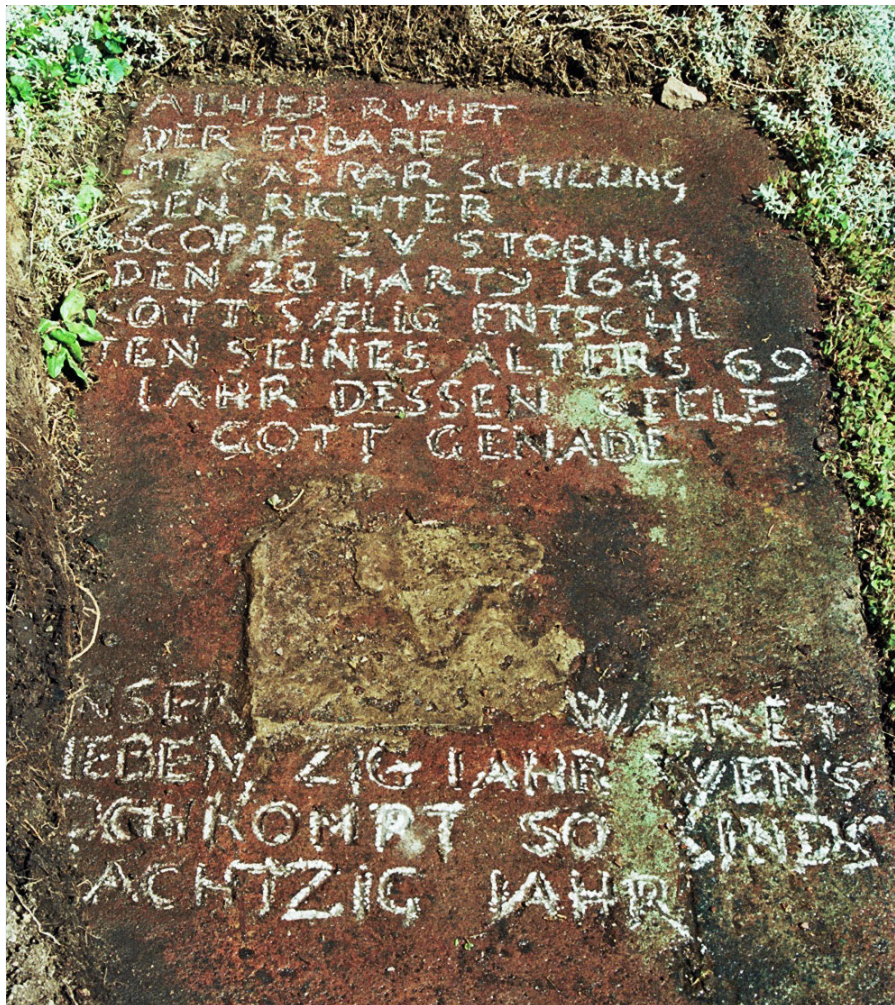 ALHIER RVHET
DER ERBARE
ME CASPAR SCHILLING
SEN RICHTER
SCOPPE ZV STOBNIG
DEN 28 MARTY 1648
GOTT SÆLIG ENTSCHL
TEN SEINES ALTERS 69
IAHR DESSEN SEELE
GOTT GENADE
NSER WÆRET
IEBEN ZIG IAHR WENS
OCH KOMPT SO SINDS
ACHTZIG IAHR